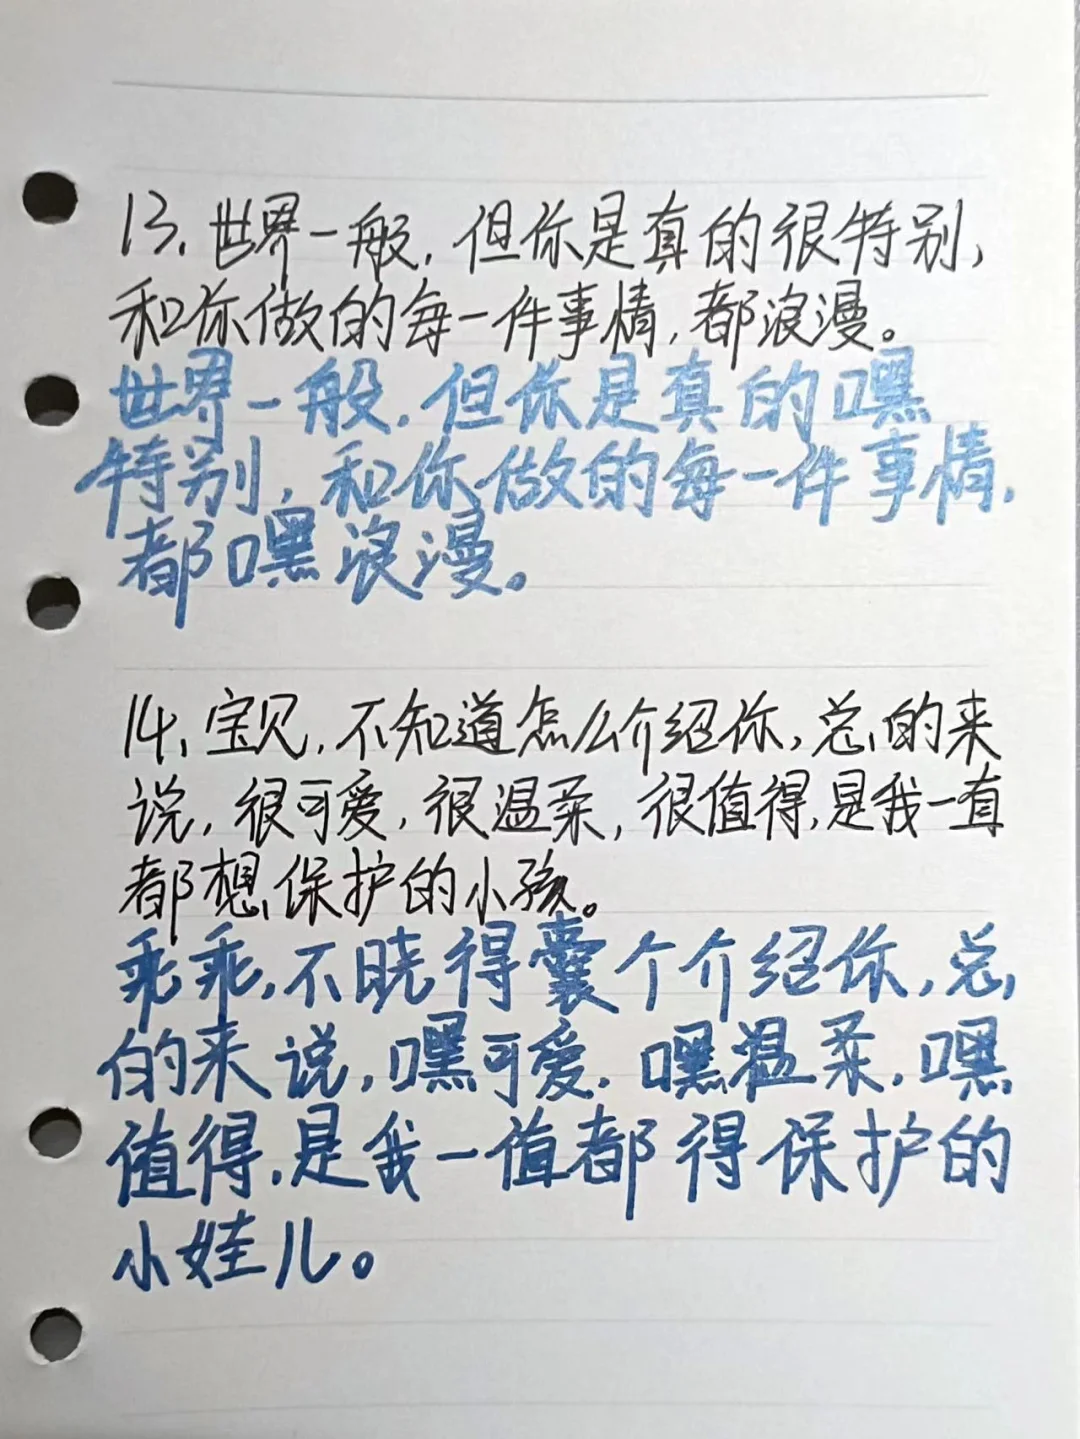 13、世界一般，但你是真的很特别，
和你做的每一件事情，都浪漫。
世界一般，但你是真的嘿
特别，和你做的每一件事情，
都嘿浪漫。
14、宝贝，不知道怎么介绍你，总的来
说，很可爱，很温柔，很值得，是我一直
都想保护的小孩。
乖乖，不晓得囊个介绍你，总
的来说，嘿可爱，嘿温柔，嘿
值得，是我一值都得保护的
小娃儿。